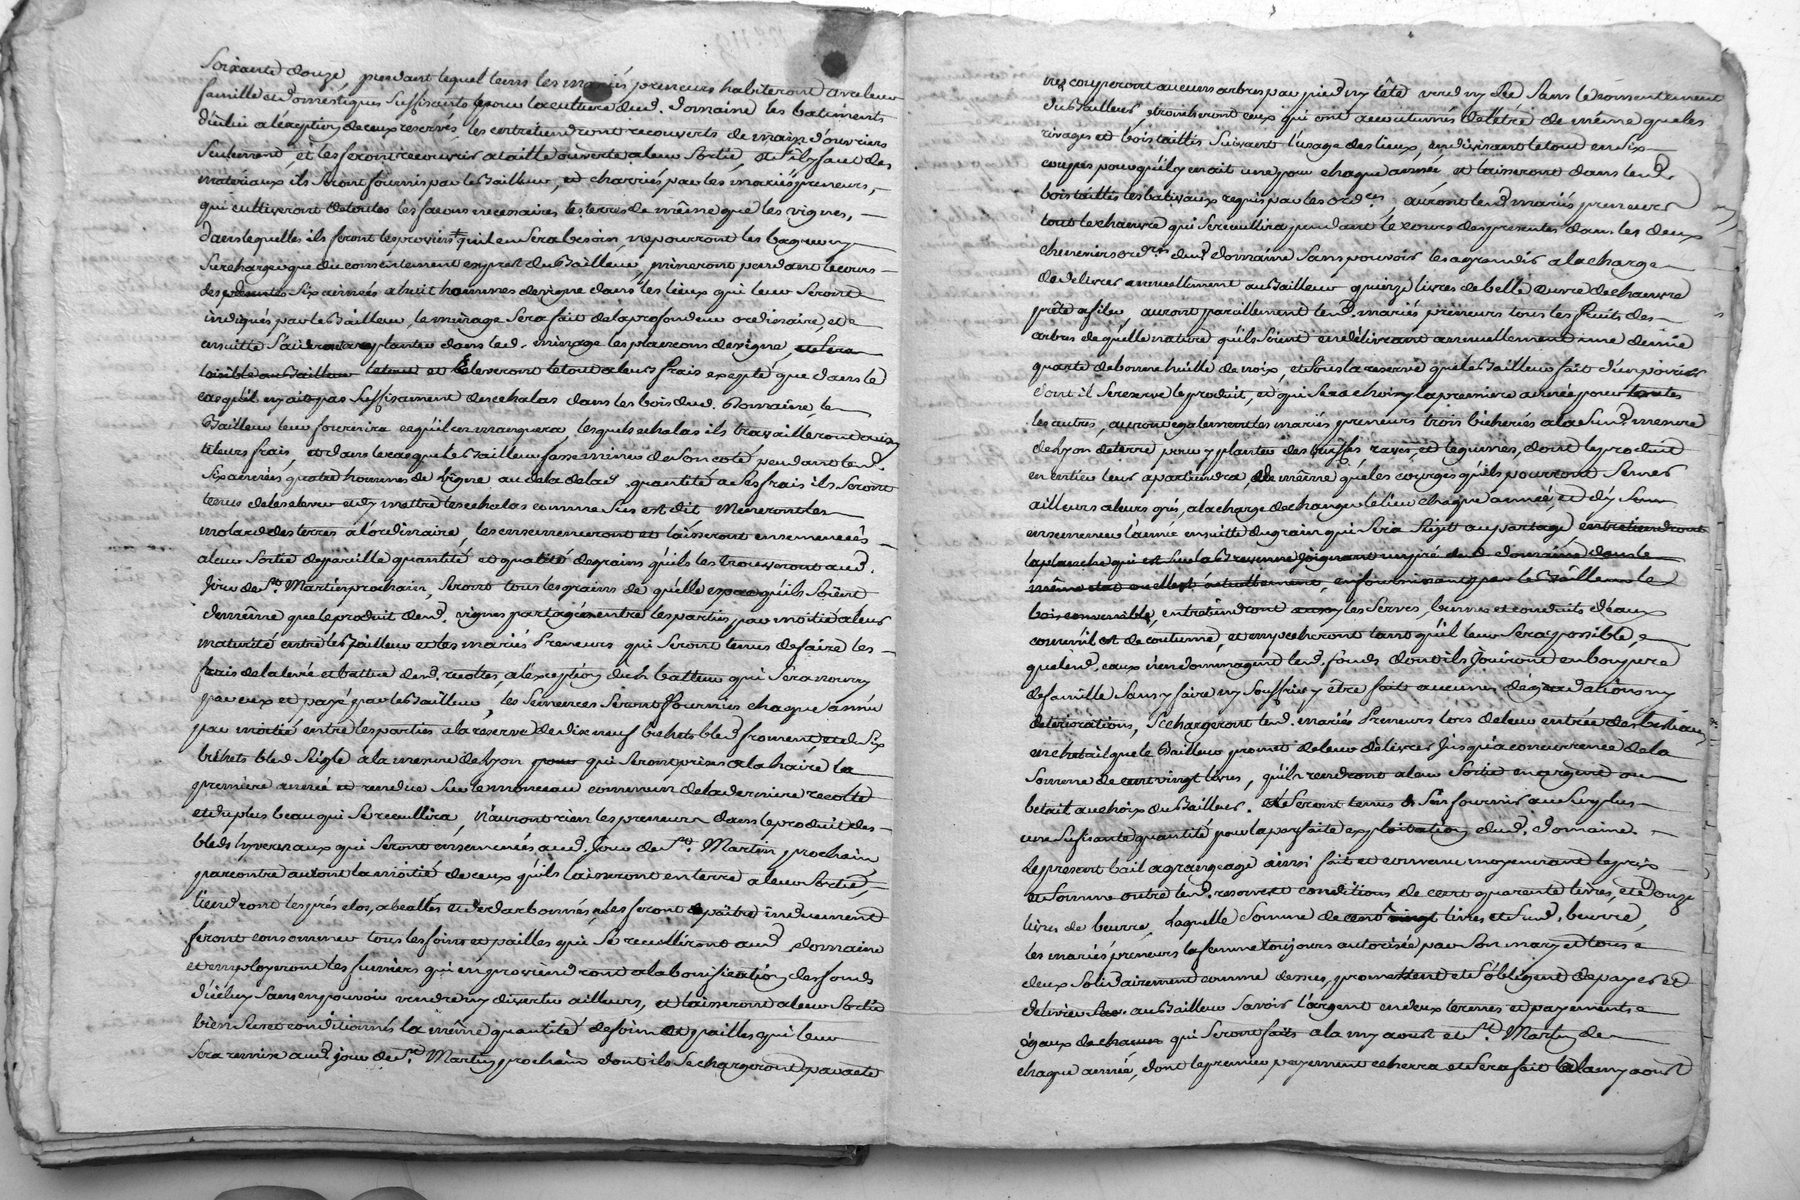 Soixante douze, pendant lequel tems les mariés preneurs habiteront avec leur
famille et domestiques suffisants pour la culture dud. domaine les batiments
d'icelui a l'exception de ceux reservés, les entretiendront recouverts de main d'ouvriers
seulement, et les feront recouvrir a taille ouverte a leur sortie, et s'il y faut des
materiaux ils seront fournis par le Bailleur, et charriés par les mariés preneurs,
qui cultiveront de toutes les façons necessaires les terres de même que les vignes,
dans lesquelles ils feront les provins qu'il en sera besoin, ne pourront les
surcharger que du consentement exprest du Bailleur, mineront pendant le cours
des six années a huit hommes de vigne dans les lieux qui leur seront
indiqués par le Bailleur, le minage sera fait de la profondeur ordinaire, et
ensuitte planter dans led. minage les plançons de vigne, et sera
loisible au Bailleur le tout et éleveront le tout a leurs frais excepté que dans le
cas qu'il n'y ait pas suffisament des echalas dans les bois dud. Domaine le
Bailleur leur fournira ce qu'il en manquera, lesquels echalas ils travailleront aussy
a leurs frais, et dans le cas que le Bailleur fasse miner de son coté, pendant lesd.
six années quatre hommes de vigne au dela de lad. quantité a ses frais ils seront
tenus de les elever et d'y mettre les echalas comme sus est dit
des terres a l'ordinaire, les ensemenceront et laisseront ensemencés
a leur sortie de pareille quantité et qualité de grains qu'ils les trouveront aud.
jour de St. Martin prochain, seront tous les grains de quelle espece qu'ils soient
de même que le produit desd. vignes partagés entre les parties par moitié a leur
maturité entre le Bailleur et les mariés Preneurs qui seront tenus de faire les
frais de la levée et battue desd. recoltes, a l'exception du batteur qui sera nourry
par eux et payé par le Bailleur, les semences seront fournies chaque année
par moitié entre les parties a la reserve de dix neuf bichets bled froment, et de six
bichets bled seigle à la mesure de Lyon pour qui seront prises la
premiere année et rendue sur le monceau commun de la derniere recolte
et du plus beau qui se recuillira, n'auront rien les preneurs dans le produit des
bleds hyvernaux qui seront ensemencés aud. jour de St. Martin prochain
par contre auront la moitié de ceux qu'ils laisseront en terre a leur sortie,
tiendront les prés clos, abealés et derdarbonnés, ne les feront paître induement
feront consommer tous les foins et pailles qui se recuilliront aud. domaine
et employeront les fumiers qui en proviendront a la bonification des fonds
d'icéluy sans en pouvoir vendre ny divertir ailleurs, et laisseront a leur sortie
bien secs et conditionnés la même quantité de foin et pailles qui leur
sera remise aud. jour de St. Martin prochain dont ils se chargeront par acte
ne couperont aucuns arbres par pied ny tête verd ny sec sans le consentement
du Bailleur, ebroncheront ceux qui ont accoutumés de l'être de même que les
rivages et bois taillis suivant l'usage des lieux, en divisant le tout en six
coupes pour qu'il y en ait une pour chaque année, et laisseront dans lesd.
bois taillis les balivaux requis par les ord.ces, auront lesd. mariés preneurs
tout le chanvre qui se recuillira pendant le cours des presentes dans les deux
cheneviers ord.res dud. domaine sans pouvoir les agrandir a la charge
de delivrer annuellement au Bailleur quinze livres de belle œuvre de chanvre
prête a filer, auront pareillement lesd. mariés preneurs tous les fruits des
arbres de quelle nature qu'ils soient en delivrant annuellement une demie
quarte de bonne huille de noix, et sous la reserve que le Bailleur fait d'un poirier
dont il se reserve le produit, et qui sera choisy la premiere année pour toutes
les autres, auront egalement les mariés preneurs trois bicherées a la susd. mesure
de Lyon de terre pour y planter des truffes, raves, et legumes, dont le produit
en entier leur apartiendra, de même que les courges qu'ils pourront semer
ailleurs a leur gré, a la charge de changer le lieu chaque année, et d'y
ensemencer l'année ensuitte du grain qui sera sujet au partage entretiendront
la planche qui est sur la Brevenne joignant un pré dud. domaine dans le
même etat ou elle est actuellement, en fournissant par le Bailleur le
bois convenable, entretiendront les serves, biez et conduits d'eaux
comm'il est de coutume, et empecheront tant qu'il leur sera possible,
que lesd. eaux n'endommagent lesd. fonds dont ils jouiront en bon pere
de famille sans y faire ny souffrir y être fait aucunes dégradations ny
deteriorations, se chargeront lesd. mariés Preneurs lors de leur entrée des bestiaux
en cheptail que le Bailleur promet de leur délivrer jusqu'a concurrence de la
somme de cent vingt livres, qu'ils rendront a leur sortie en argent ou
betail au choix du Bailleur. et seront tenus de s'en fournir au surplus
une suffisante quantité pour la parfaite exploitation dud. domaine.
Le present bail a grangeage ainsi fait et convenu moyennant le prix
et somme outre lesd. reserves et conditions de cent quarante livres, et douze
livres de beurre, laquelle somme de cent vingt livres et susd. beurre,
les mariés preneurs la femme toujours autorisée par son mary et tous
deux solidairement comme dessus, promettent et s'obligent de payer et
delivrer au Bailleur savoir l'argent en deux termes et payements
égaux de chacun qui seront faits a la my aoust et St. Martin de
chaque année, dont le premier payement echerra et sera fait a la my aoust